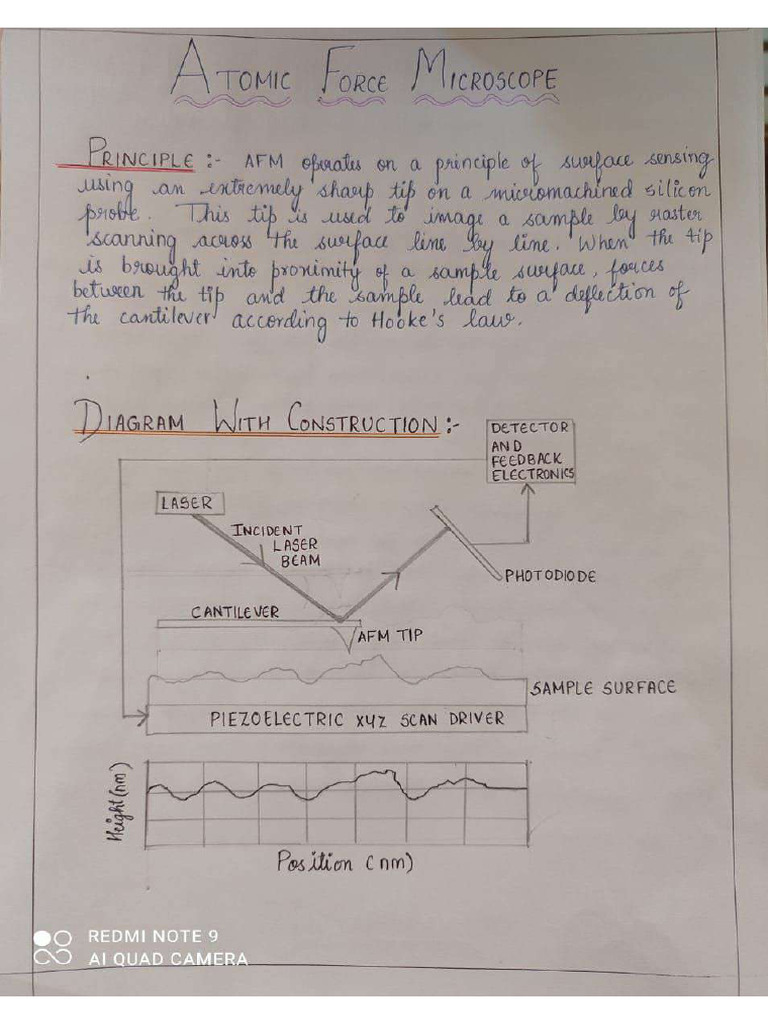 ATOMIC FORCE MICROSCOPE
PRINCIPLE :- AFM operates on a principle of surface sensing
using an extremely sharp tip on a micromachined silicon
probe. This tip is used to image a sample by raster
scanning across the surface line by line. When the tip
is brought into proximity of a sample surface, forces
between the tip and the sample lead to a deflection of
the cantilever according to Hooke's law.
DIAGRAM WITH CONSTRUCTION :-
DETECTOR
AND
FEEDBACK
ELECTRONICS
LASER
INCIDENT
LASER
BEAM
PHOTODIODE
CANTILEVER
AFM TIP
SAMPLE SURFACE
PIEZOELECTRIC XYZ SCAN DRIVER
Height (nm)
Position (nm)
REDMI NOTE 9
AI QUAD CAMERA